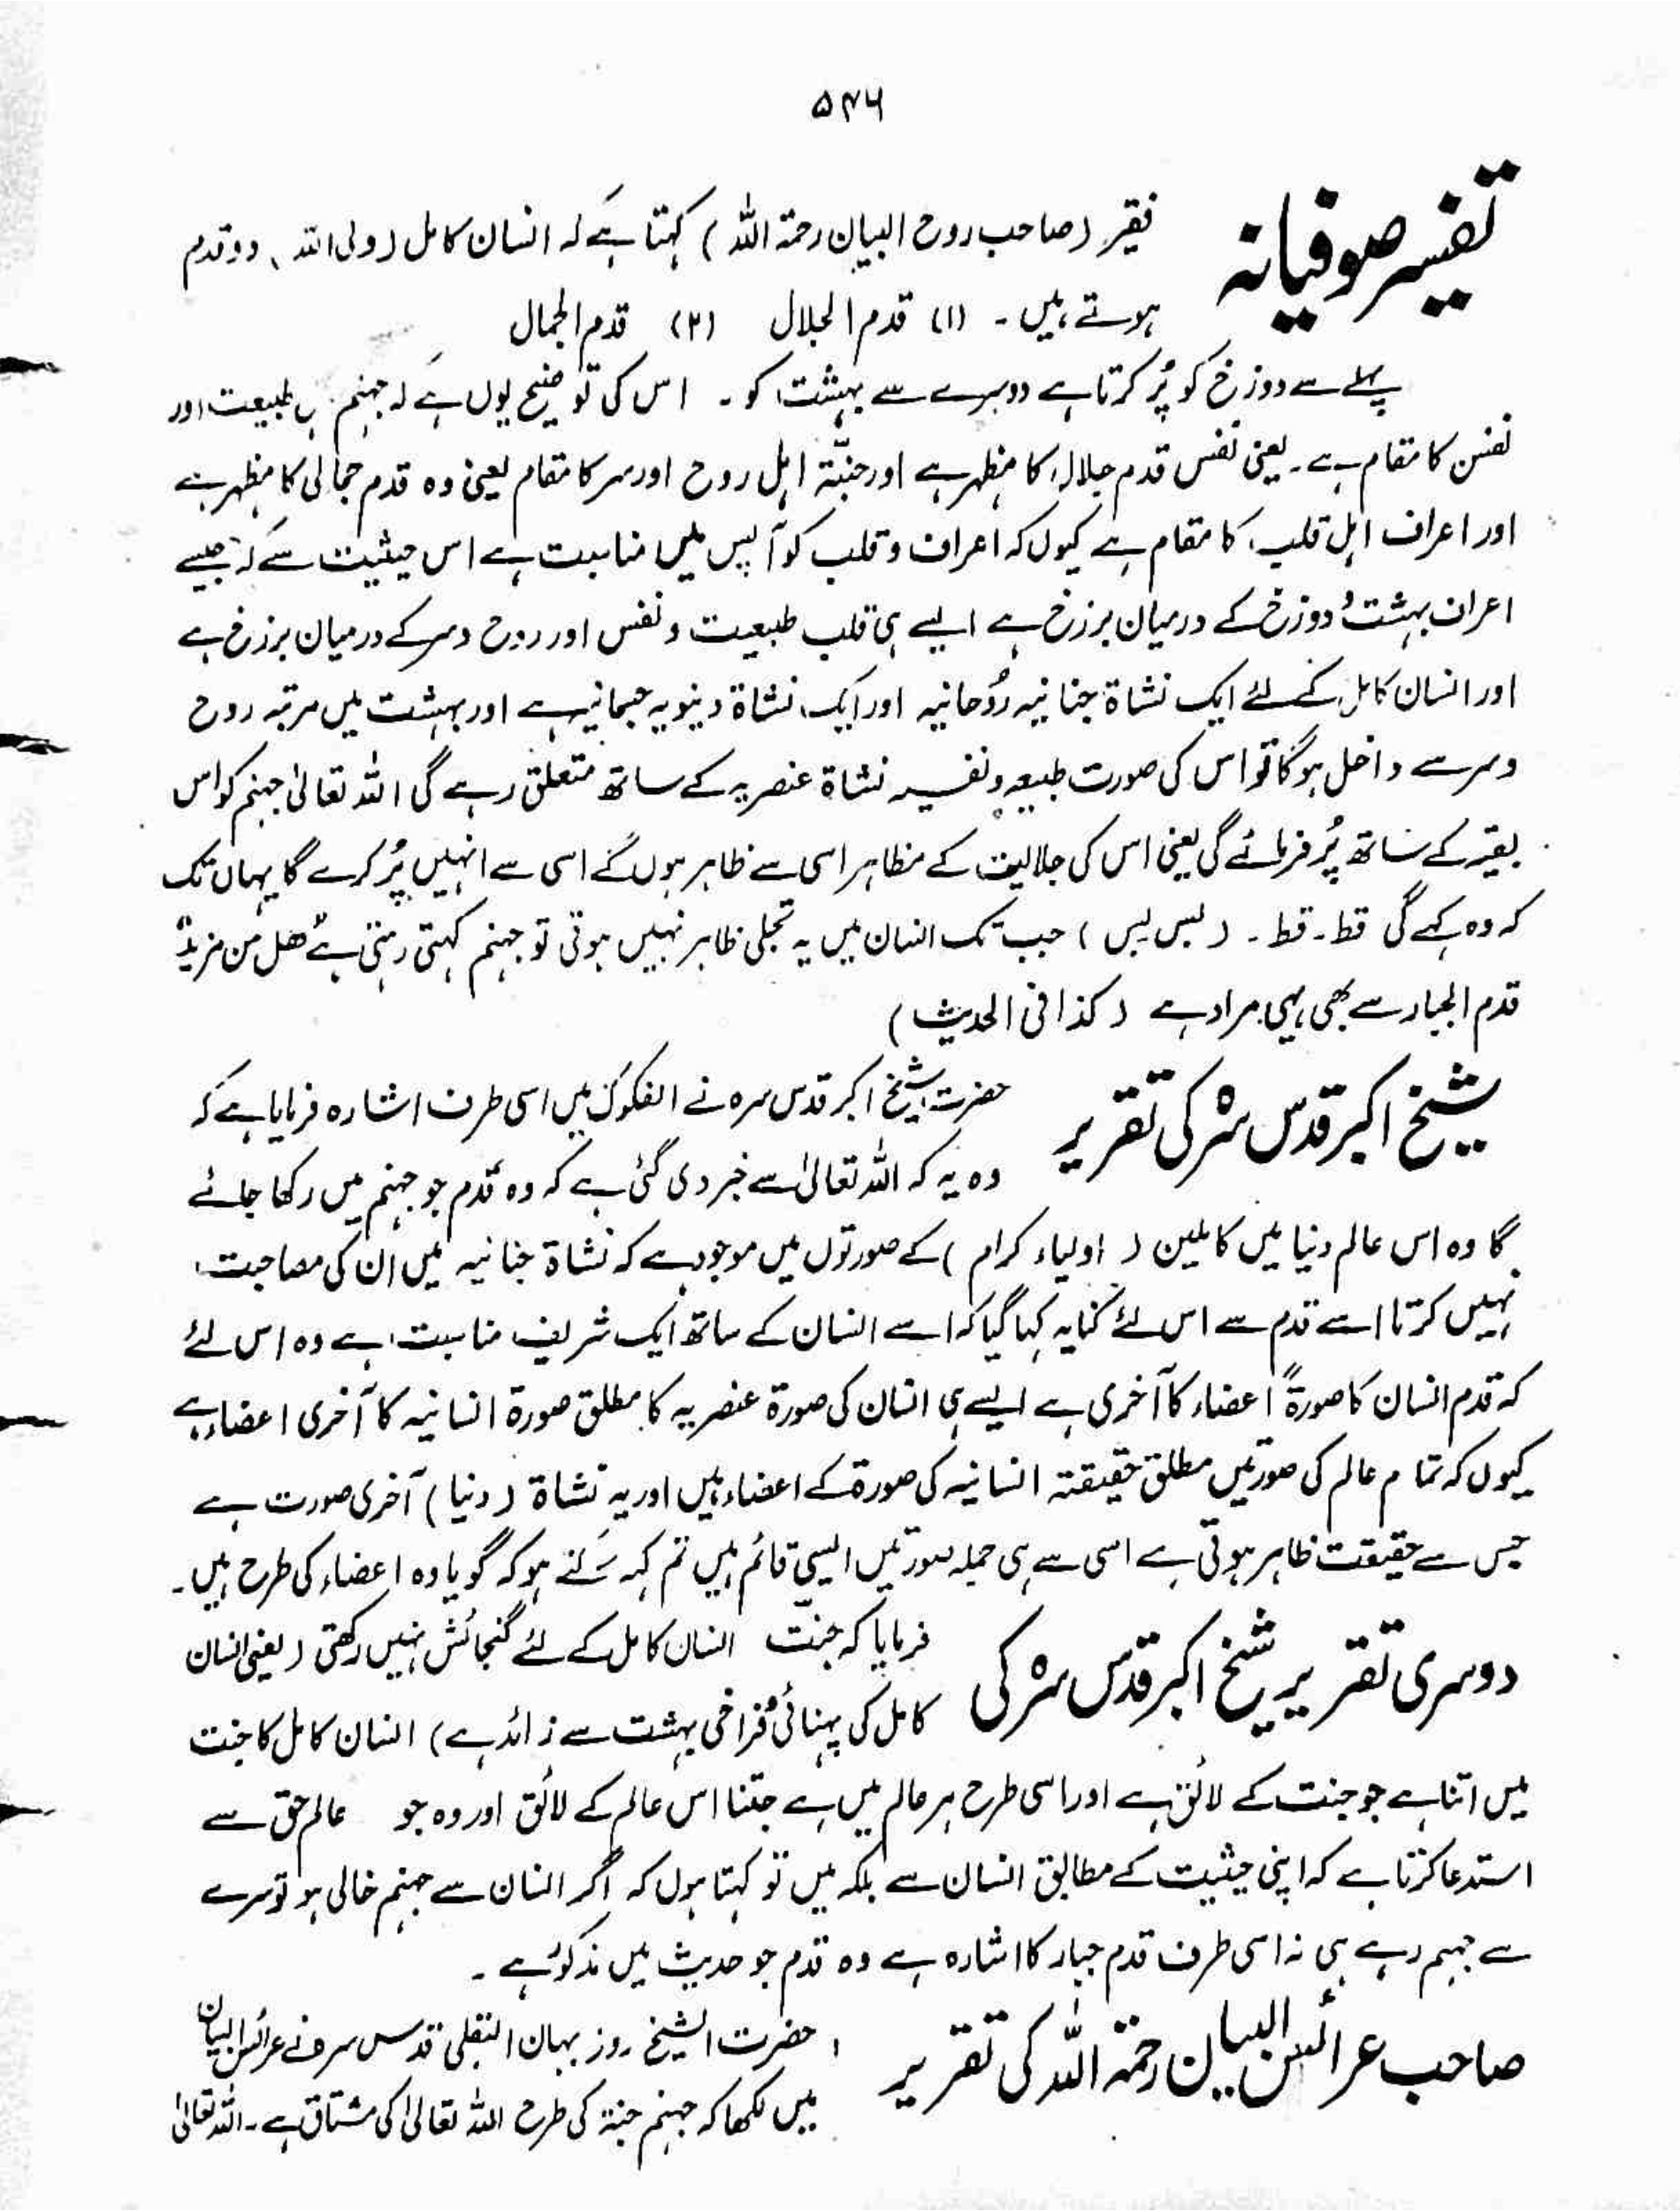 ۵۴۶
تفسیر صوفیانہ
فقیر (صاحب روح البیان رحمۃ اللہ) کہتا ہے کہ انسان کامل (ولی اللہ) دو قدم
ہوتے ہیں۔ (۱) قدم الجلال (۲) قدم الجمال
پہلے سے دوزخ کو پُر کرتا ہے دوسرے سے بہشت کو۔ اس کی توضیح یوں ہے کہ جہنم اہل طبیعت اور
نفس کا مقام ہے۔ یعنی نفس قدم جلال کا مظہر ہے اور جنّۃ اہل روح اور سر کا مقام یعنی وہ قدم جمالی کا مظہر ہے
اور اعراف اہل قلب کا مقام ہے کیوں کہ اعراف و قلب کو آپس میں مناسبت ہے اس حیثیت سے کہ جیسے
اعراف بہشت و دوزخ کے درمیان برزخ ہے ایسے ہی قلب طبیعت و نفس اور روح و سر کے درمیان برزخ ہے
اور انسان کامل کے لئے ایک نشاۃ جنانیہ رُوحانیہ اور ایک نشاۃ دنیویہ جسمانیہ ہے اور بہشت میں مرتبہ روح
و سر سے داخل ہوگا تو اس کی صورت طبیعہ و نفسیہ نشاۃ عنصریہ کے ساتھ متعلق رہے گی اللہ تعالیٰ جہنم کو اس
بقیہ کے ساتھ پُر فرمائے گی یعنی اس کی جلالیت کے مظاہر اسی سے ظاہر ہوں گے اسی سے انہیں پُر کرے گا یہاں تک
کہ وہ کہے گی قط۔ قط۔ (بس بس) جب تک انسان میں یہ تجلی ظاہر نہیں ہوتی تو جہنم کہتی رہتی ہے ھل من مزید
قدم الجبار سے بھی یہی مراد ہے (کذا فی الحدیث)
شیخ اکبر قدس سرہ کی تقریر
حضرت الشیخ اکبر قدس سرہ نے الفکوک میں اسی طرف اشارہ فرمایا ہے کہ
وہ یہ کہ اللہ تعالیٰ سے خبر دی گئی ہے کہ وہ قدم جو جہنم میں رکھا جائے
گا وہ اس عالم دنیا میں کاملین (اولیاء کرام) کے صورتوں میں موجود ہے کہ نشاۃ جنانیہ میں ان کی مصاحبت
نہیں کرتا اسے قدم سے اس لئے کنایہ کہا گیا کہ اسے انسان کے ساتھ ایک شریف مناسبت ہے وہ اس لئے
کہ قدم انسان کا صورۃً اعضاء کا آخری ہے ایسے ہی انسان کی صورۃ عنصریہ کا مطلق صورۃ انسانیہ کا آخری اعضاء ہے
کیوں کہ تمام عالم کی صورتیں مطلق حقیقتہ انسانیہ کی صورۃ کے اعضاء ہیں اور یہ نشاۃ (دنیا) آخری صورت ہے
جس سے حقیقت ظاہر ہوتی ہے اسی سے ہی جملہ صورتیں ایسی قائم ہیں تم کہہ سکتے ہو کہ گویا وہ اعضاء کی طرح ہیں۔
دوسری تقریر شیخ اکبر قدس سرہ کی
فرمایا کہ جنت انسان کامل کے لئے گنجائش نہیں رکھتی (یعنی انسان
کامل کی پہنائی و فراخی بہشت سے زائد ہے) انسان کامل کا جنت
میں اتنا ہے جو جنت کے لائق ہے اور اسی طرح ہر عالم میں ہے جتنا اس عالم کے لائق اور وہ جو عالم حق سے
استدعا کرتا ہے کہ اپنی حیثیت کے مطابق انسان سے بلکہ میں تو کہتا ہوں کہ اگر انسان سے جہنم خالی ہو تو سرے
سے جہنم رہے ہی نہ اسی طرف قدم جبار کا اشارہ ہے وہ قدم جو حدیث میں مذکور ہے۔
صاحب عرائس البیان رحمۃ اللہ کی تقریر
حضرت الشیخ روز بہان البقلی قدس سرہ نے عرائس البیان
میں لکھا کہ جہنم جنۃ کی طرح اللہ تعالیٰ کی مشتاق ہے۔ اللہ تعالیٰ